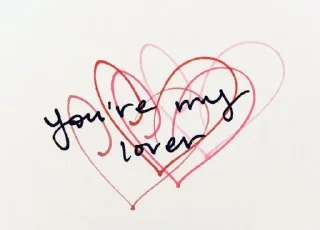 you're my
lover